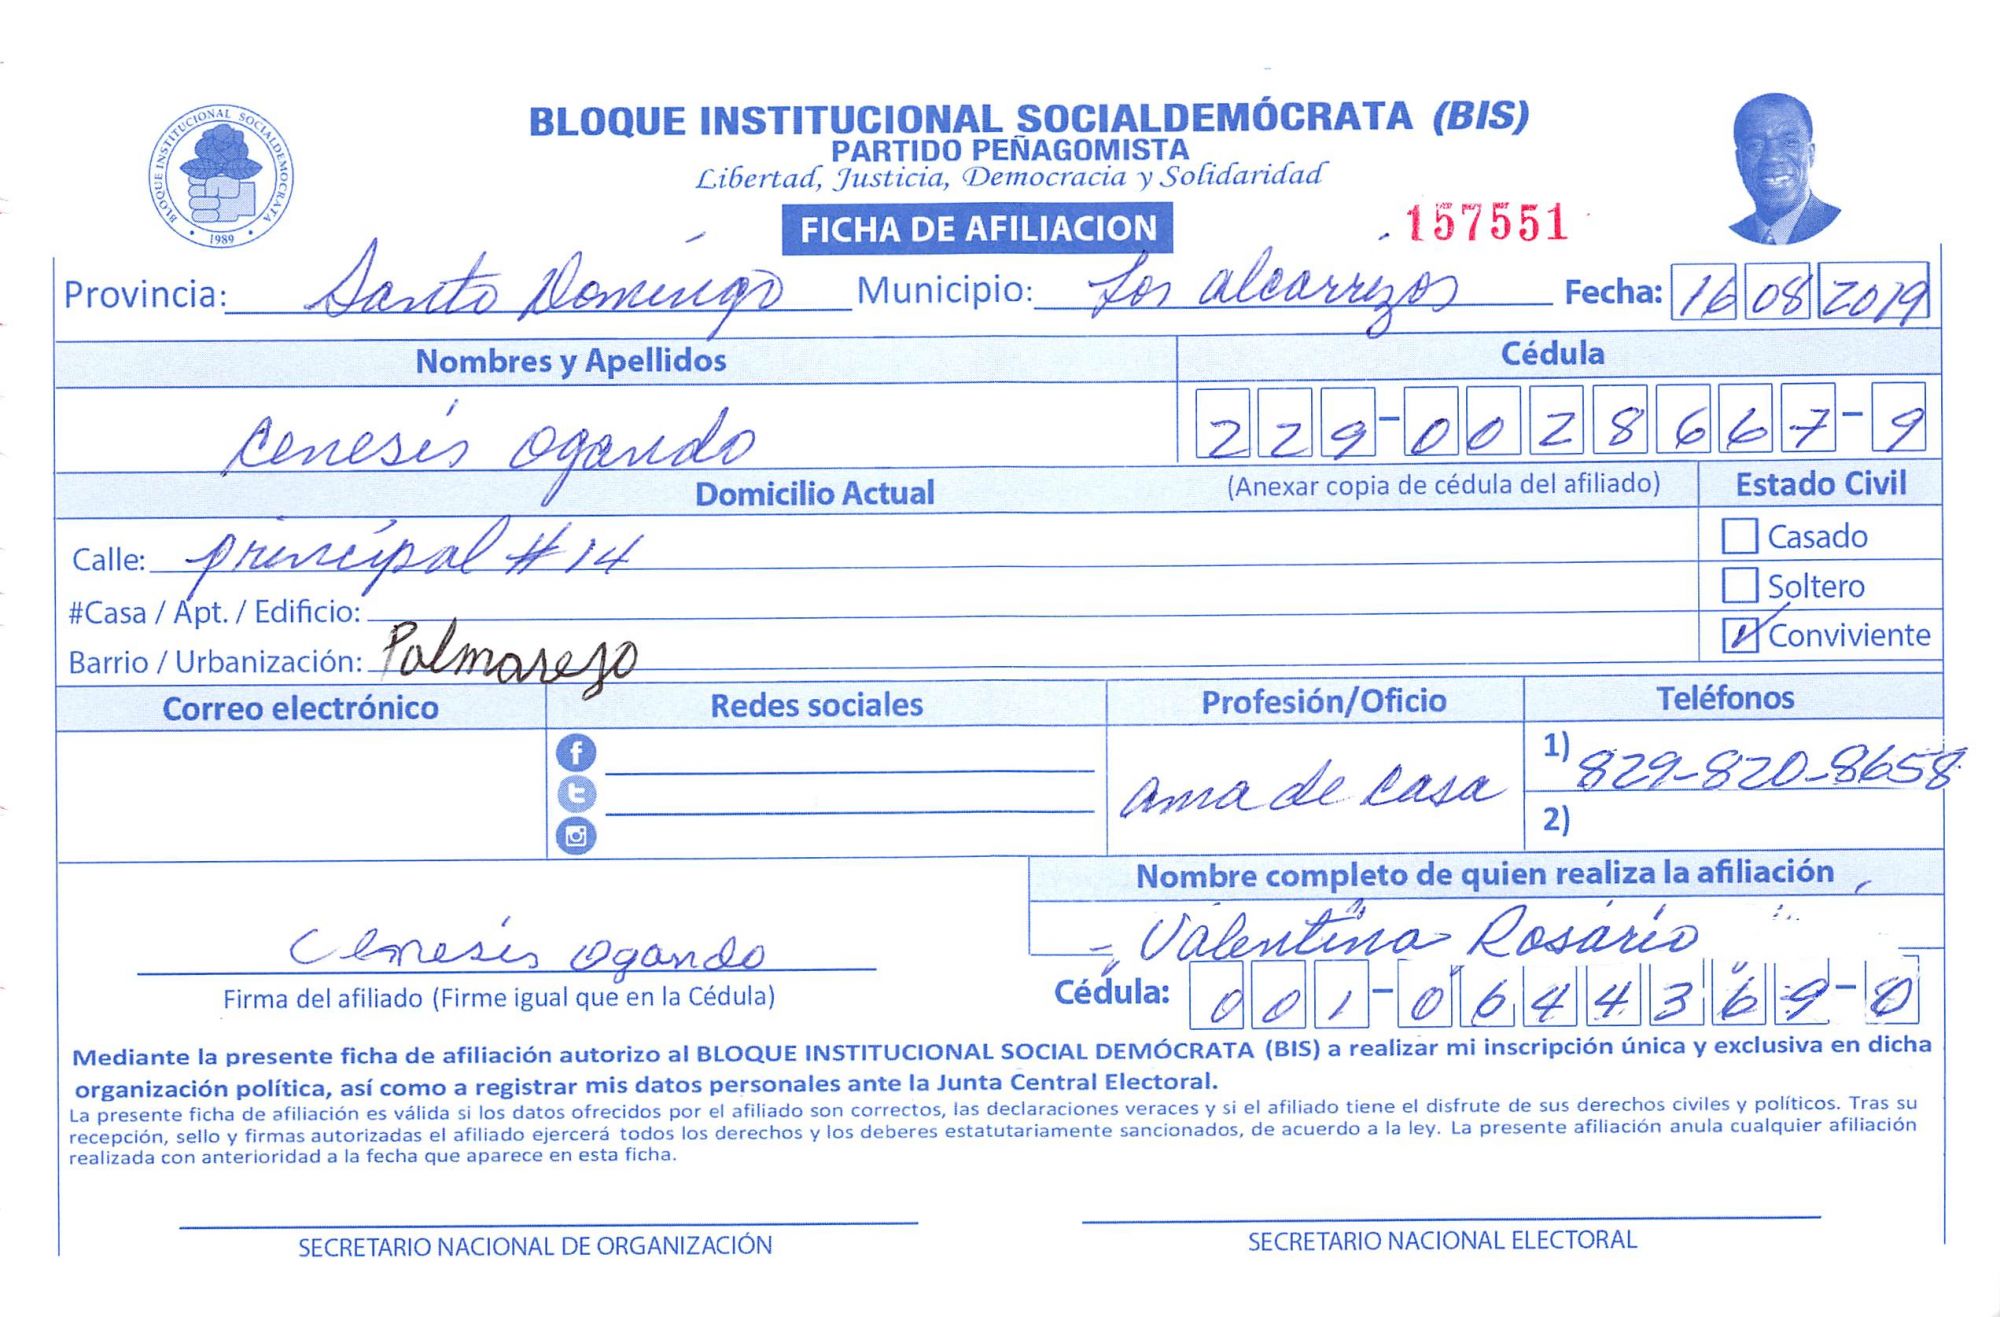 BLOQUE INSTITUCIONAL SOCIALDEMOCRATA
1989
BLOQUE INSTITUCIONAL SOCIALDEMÓCRATA (BIS)
PARTIDO PEÑAGOMISTA
Libertad, Justicia, Democracia y Solidaridad
FICHA DE AFILIACION
157551
Provincia: Santo Domingo Municipio: Los alcarrizos Fecha: 16 08 2019
Nombres y Apellidos Cédula
Cenesis Ogando 229-0028667-9
Domicilio Actual (Anexar copia de cédula del afiliado) Estado Civil
Calle: principal # 14
Casado
#Casa / Apt. / Edificio:
Soltero
Barrio / Urbanización: Palmarejo
Conviviente
Correo electrónico Redes sociales Profesión/Oficio Teléfonos
ama de casa
1) 829-820-8658
2)
Nombre completo de quien realiza la afiliación
Valentina Rosario
Cenesis Ogando
Firma del afiliado (Firme igual que en la Cédula)
Cédula: 001-0644369-0
Mediante la presente ficha de afiliación autorizo al BLOQUE INSTITUCIONAL SOCIAL DEMÓCRATA (BIS) a realizar mi inscripción única y exclusiva en dicha
organización política, así como a registrar mis datos personales ante la Junta Central Electoral.
La presente ficha de afiliación es válida si los datos ofrecidos por el afiliado son correctos, las declaraciones veraces y si el afiliado tiene el disfrute de sus derechos civiles y políticos. Tras su
recepción, sello y firmas autorizadas el afiliado ejercerá todos los derechos y los deberes estatutariamente sancionados, de acuerdo a la ley. La presente afiliación anula cualquier afiliación
realizada con anterioridad a la fecha que aparece en esta ficha.
SECRETARIO NACIONAL DE ORGANIZACIÓN
SECRETARIO NACIONAL ELECTORAL